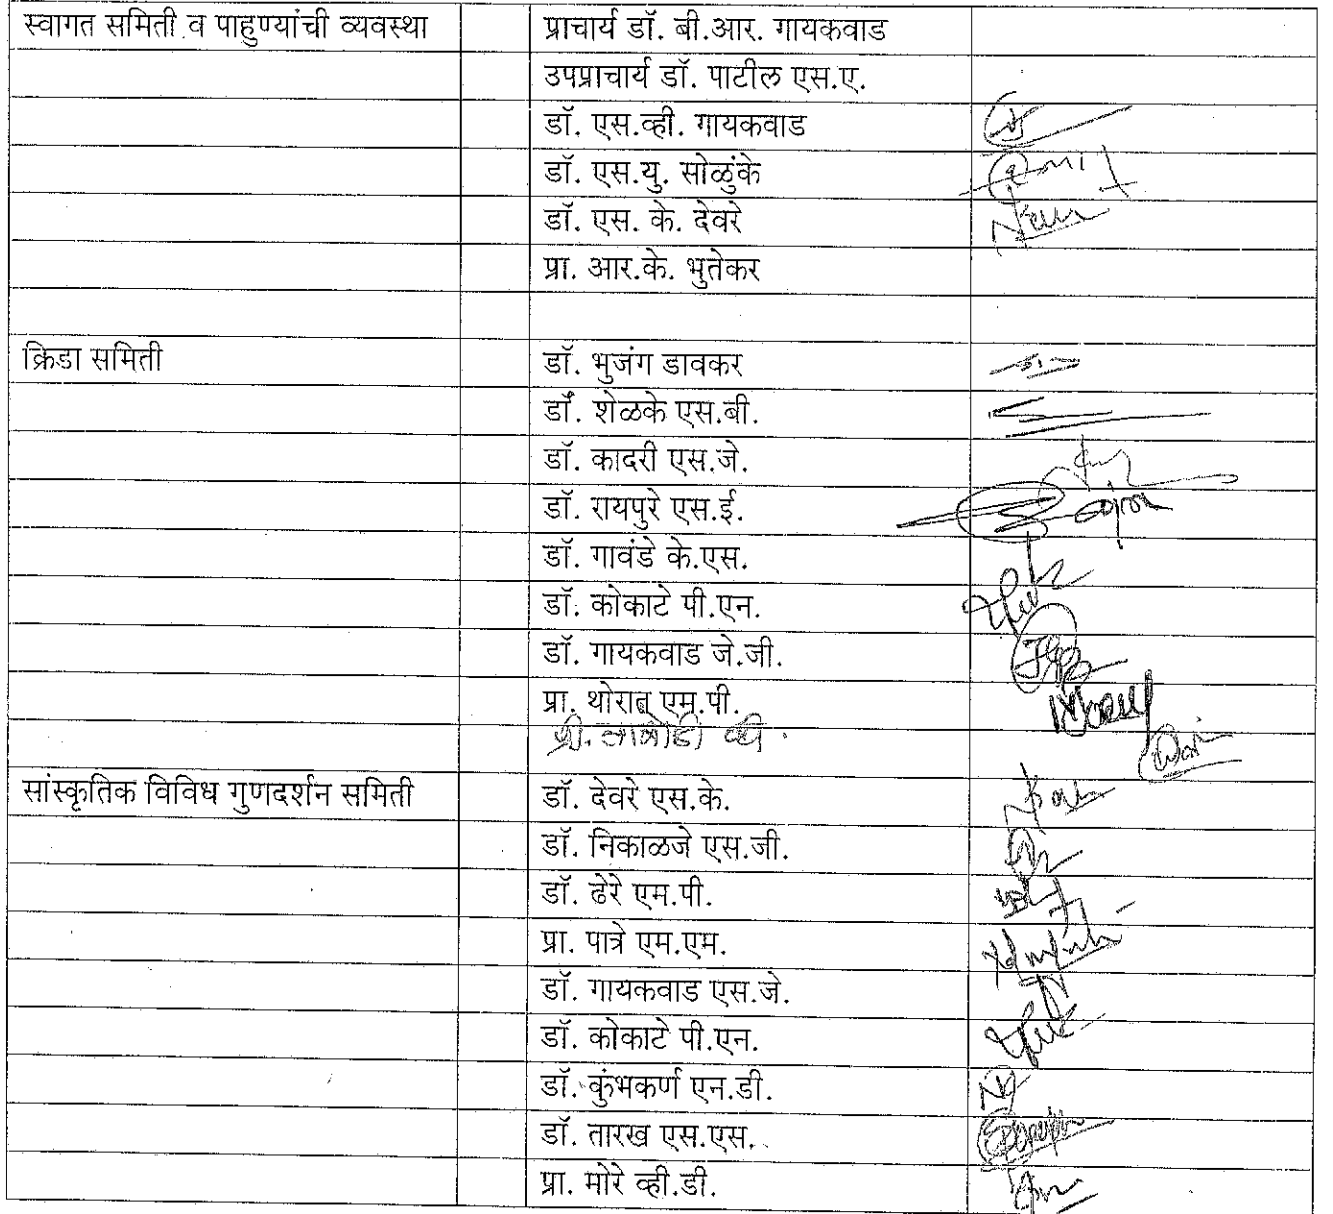 स्वागत समिती व पाहुण्यांची व्यवस्था प्राचार्य डॉ. बी.आर. गायकवाड
उपप्राचार्य डॉ. पाटील एस.ए.
डॉ. एस.व्ही. गायकवाड
डॉ. एस.यु. सोळुंके
डॉ. एस. के. देवरे
प्रा. आर.के. भुतेकर
क्रिडा समिती डॉ. भुजंग डावकर
डॉ. शेळके एस.बी.
डॉ. कादरी एस.जे.
डॉ. रायपुरे एस.ई.
डॉ. गावंडे के.एस.
डॉ. कोकाटे पी.एन.
डॉ. गायकवाड जे.जी.
प्रा. थोरात एम.पी.
सांस्कृतिक विविध गुणदर्शन समिती डॉ. देवरे एस.के.
डॉ. निकाळजे एस.जी.
डॉ. ढेरे एम.पी.
प्रा. पात्रे एम.एम.
डॉ. गायकवाड एस.जे.
डॉ. कोकाटे पी.एन.
डॉ. कुंभकर्ण एन.डी.
डॉ. तारख एस.एस.
प्रा. मोरे व्ही.डी.